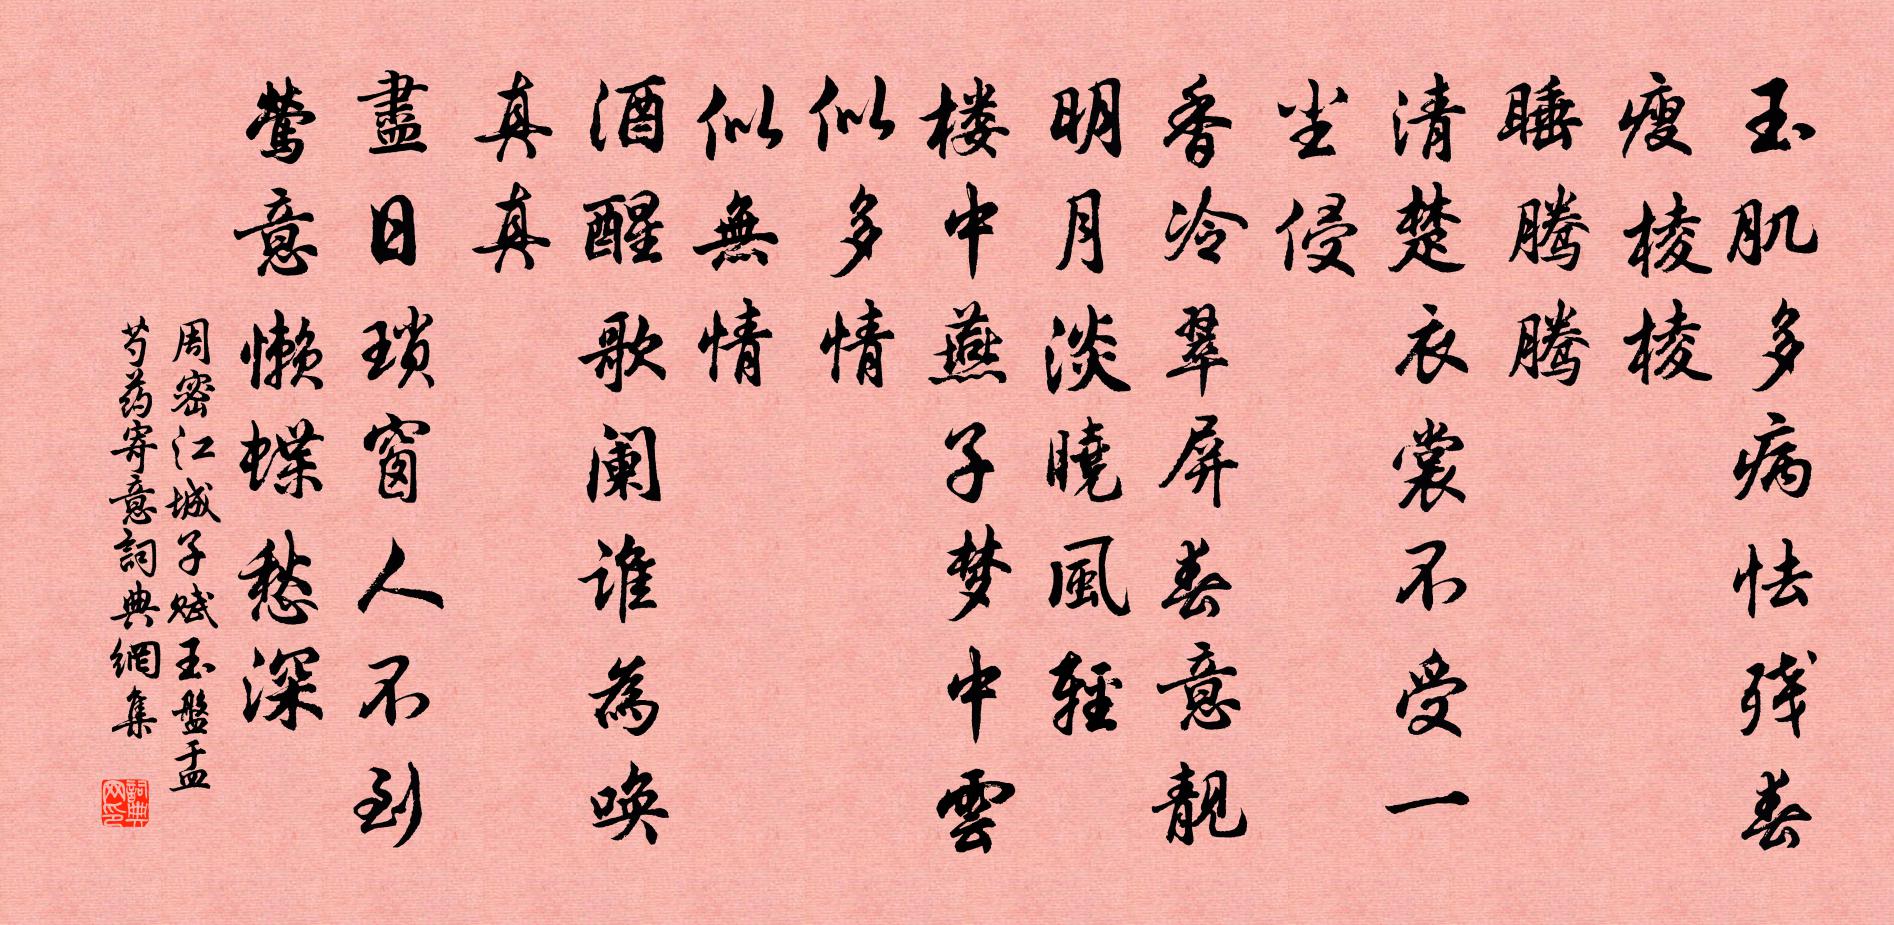 玉肌多病怯残春
瘦棱棱
睡腾腾
清楚衣裳不受一
尘侵
香冷翠屏春意靓
明月淡曉風輕
楼中燕子梦中雲
似多情
似無情
酒醒歌阑谁為唤
真真
盡日瑣窗人不到
莺意懒蝶愁深
周密江城子赋玉盤盂
芍药寄意詞典網集
詞典网印